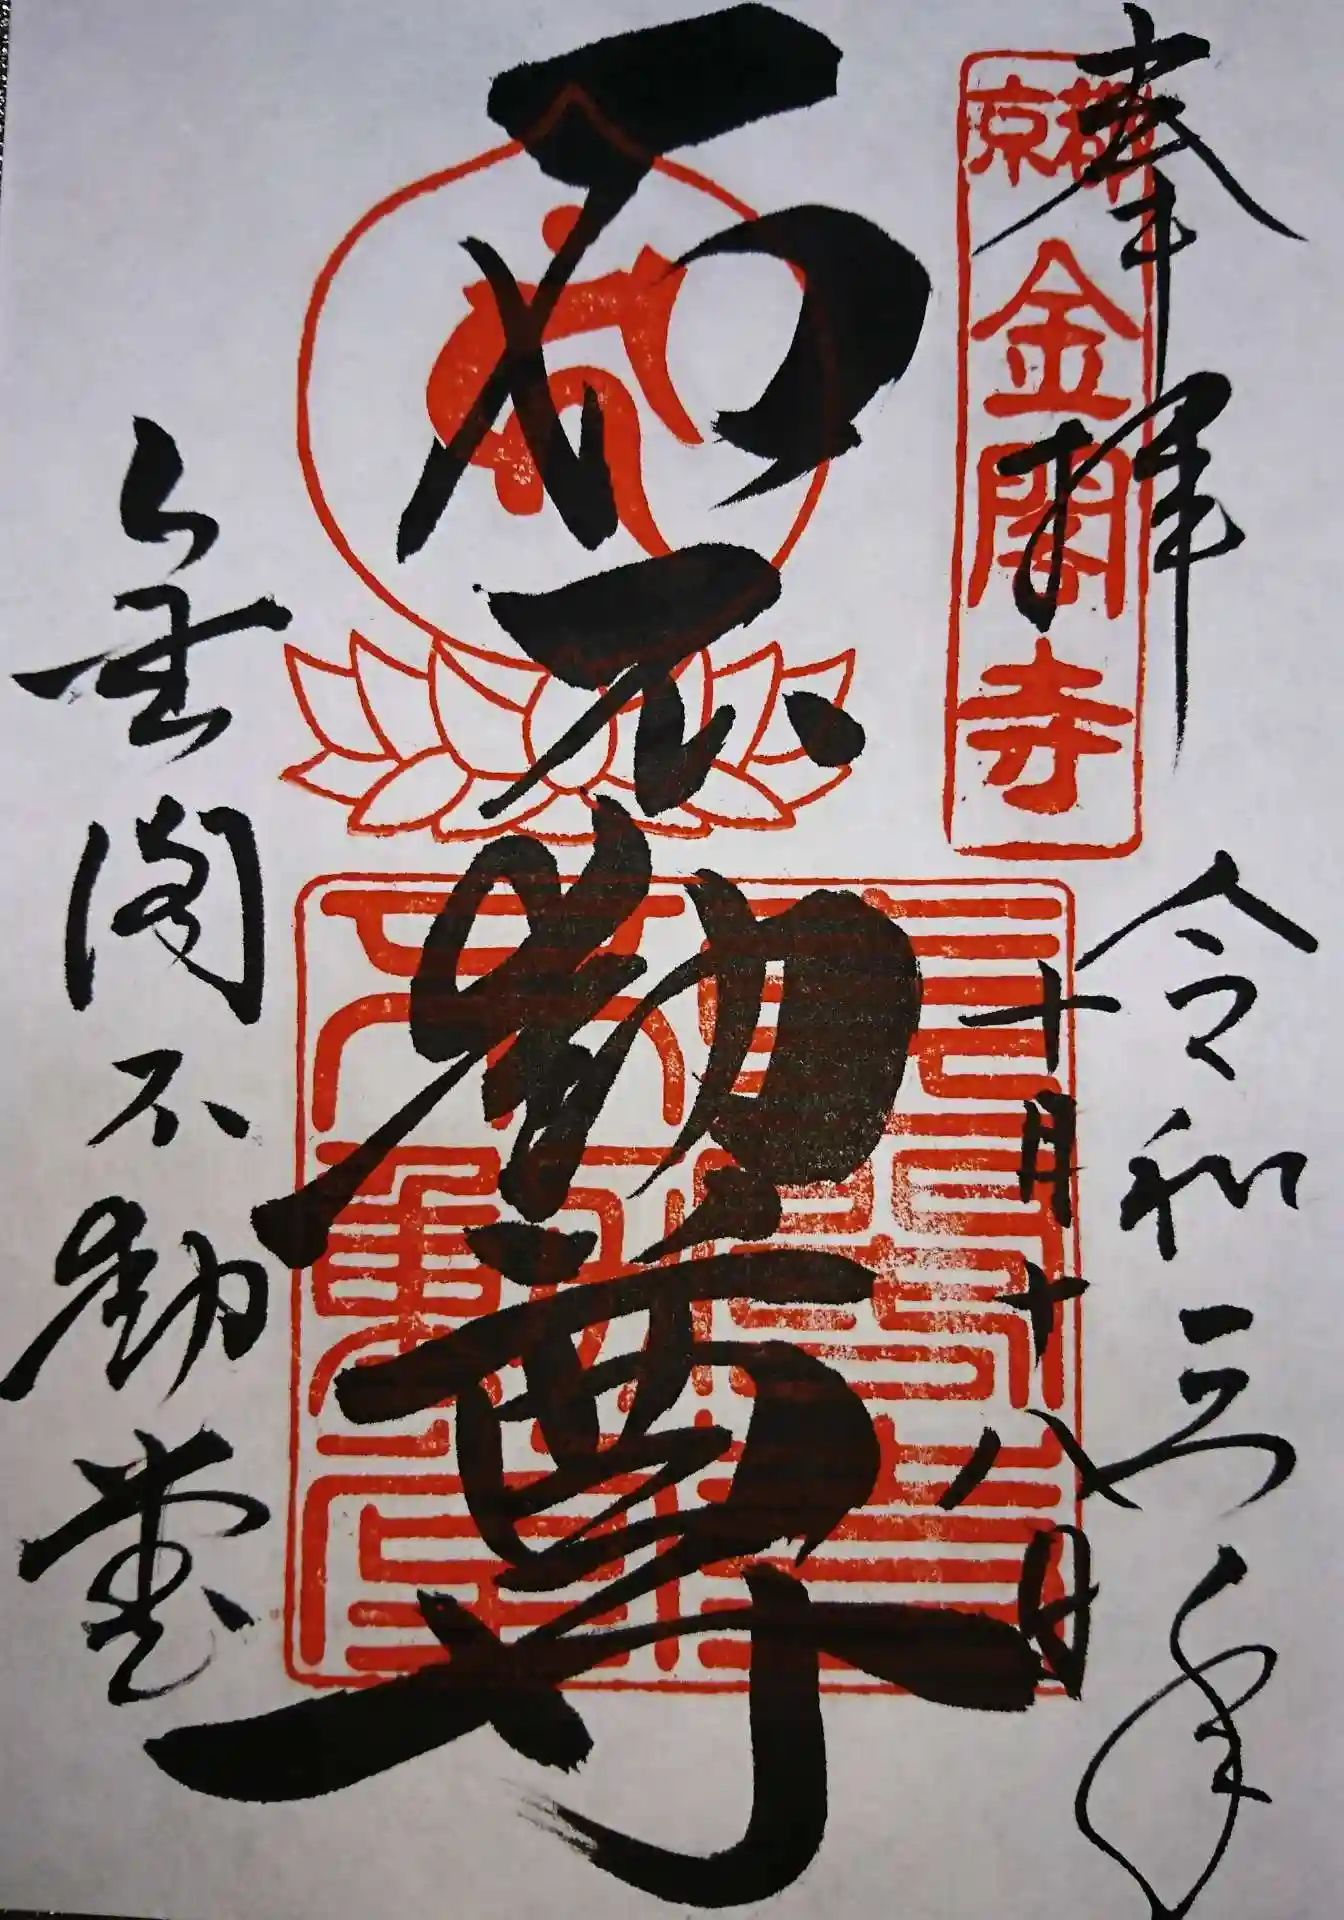 奉拝
令和三年
十月十八日
京都
金閣寺
石不動尊
金閣不動堂